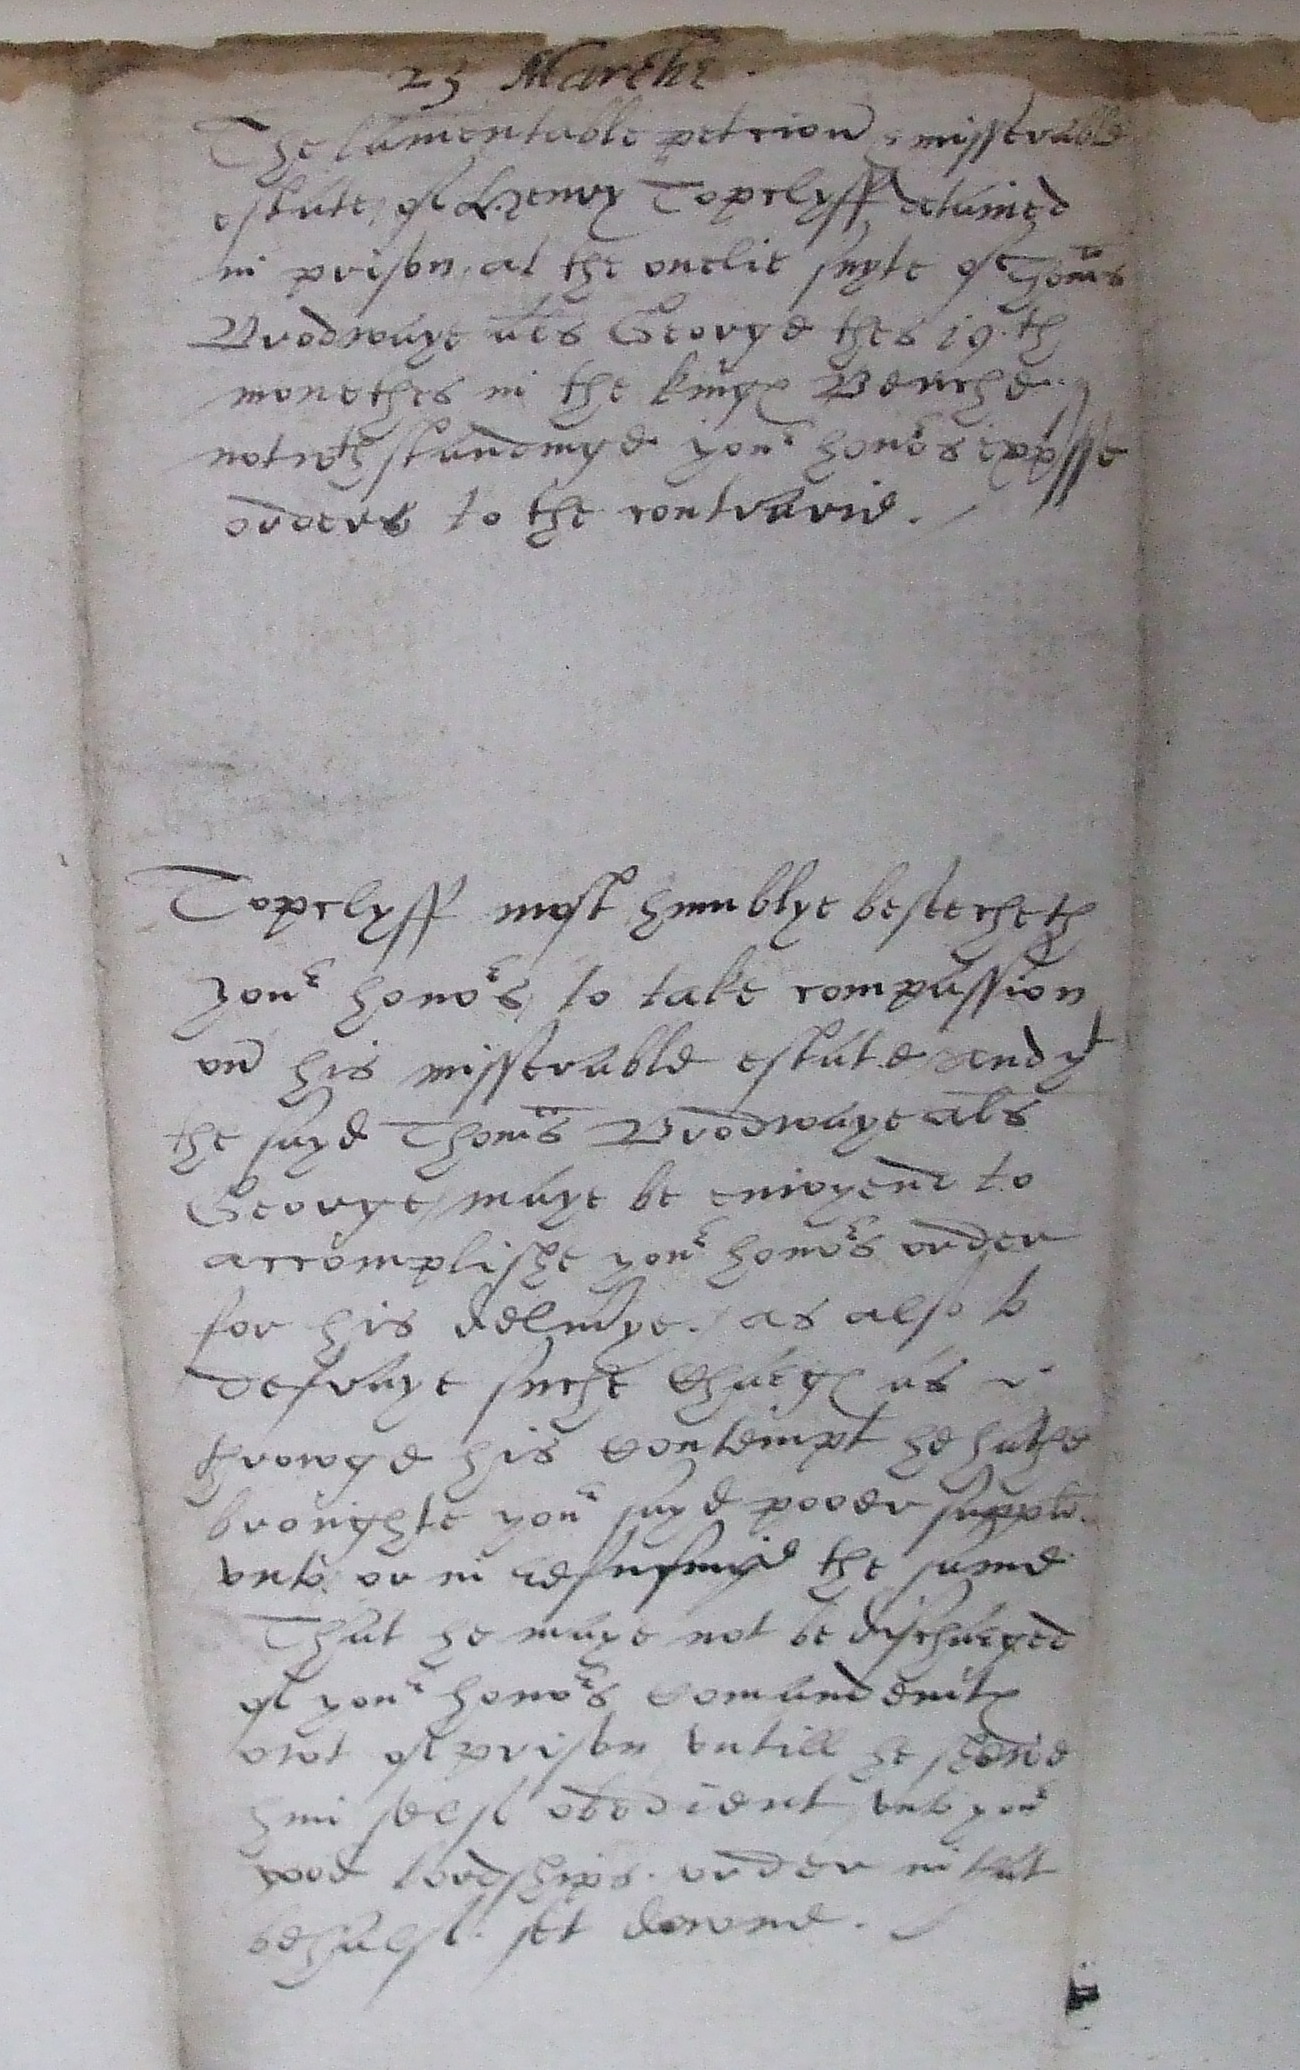 23 Marche
The lamentable peticion & misserable
estate of Henry Topclyff detained
in prison at the onelie suyte of Thoms
Brodwaye als George thes 19.th
monethes in the kings Benche
notwthstandinge your honors expsse
orders to the contrarie.
Topclyff most humblye besecheth
your honors to take compassion
on his misserable estate and yt
the sayd Thoms Brodwaye als
George maye be enioyend to
accomplishe your honors order
for his delivrye. as also to
defraye suche Charges as
throwge his Contempt he hathe
broughte your sayd pooer supplt.
unto or in refusinge the same
That he maye not be discharged
of your honors Comandemts
owt of prison untill he shewe
him self obedient unto your
good lordships order in that
behalf set downe.